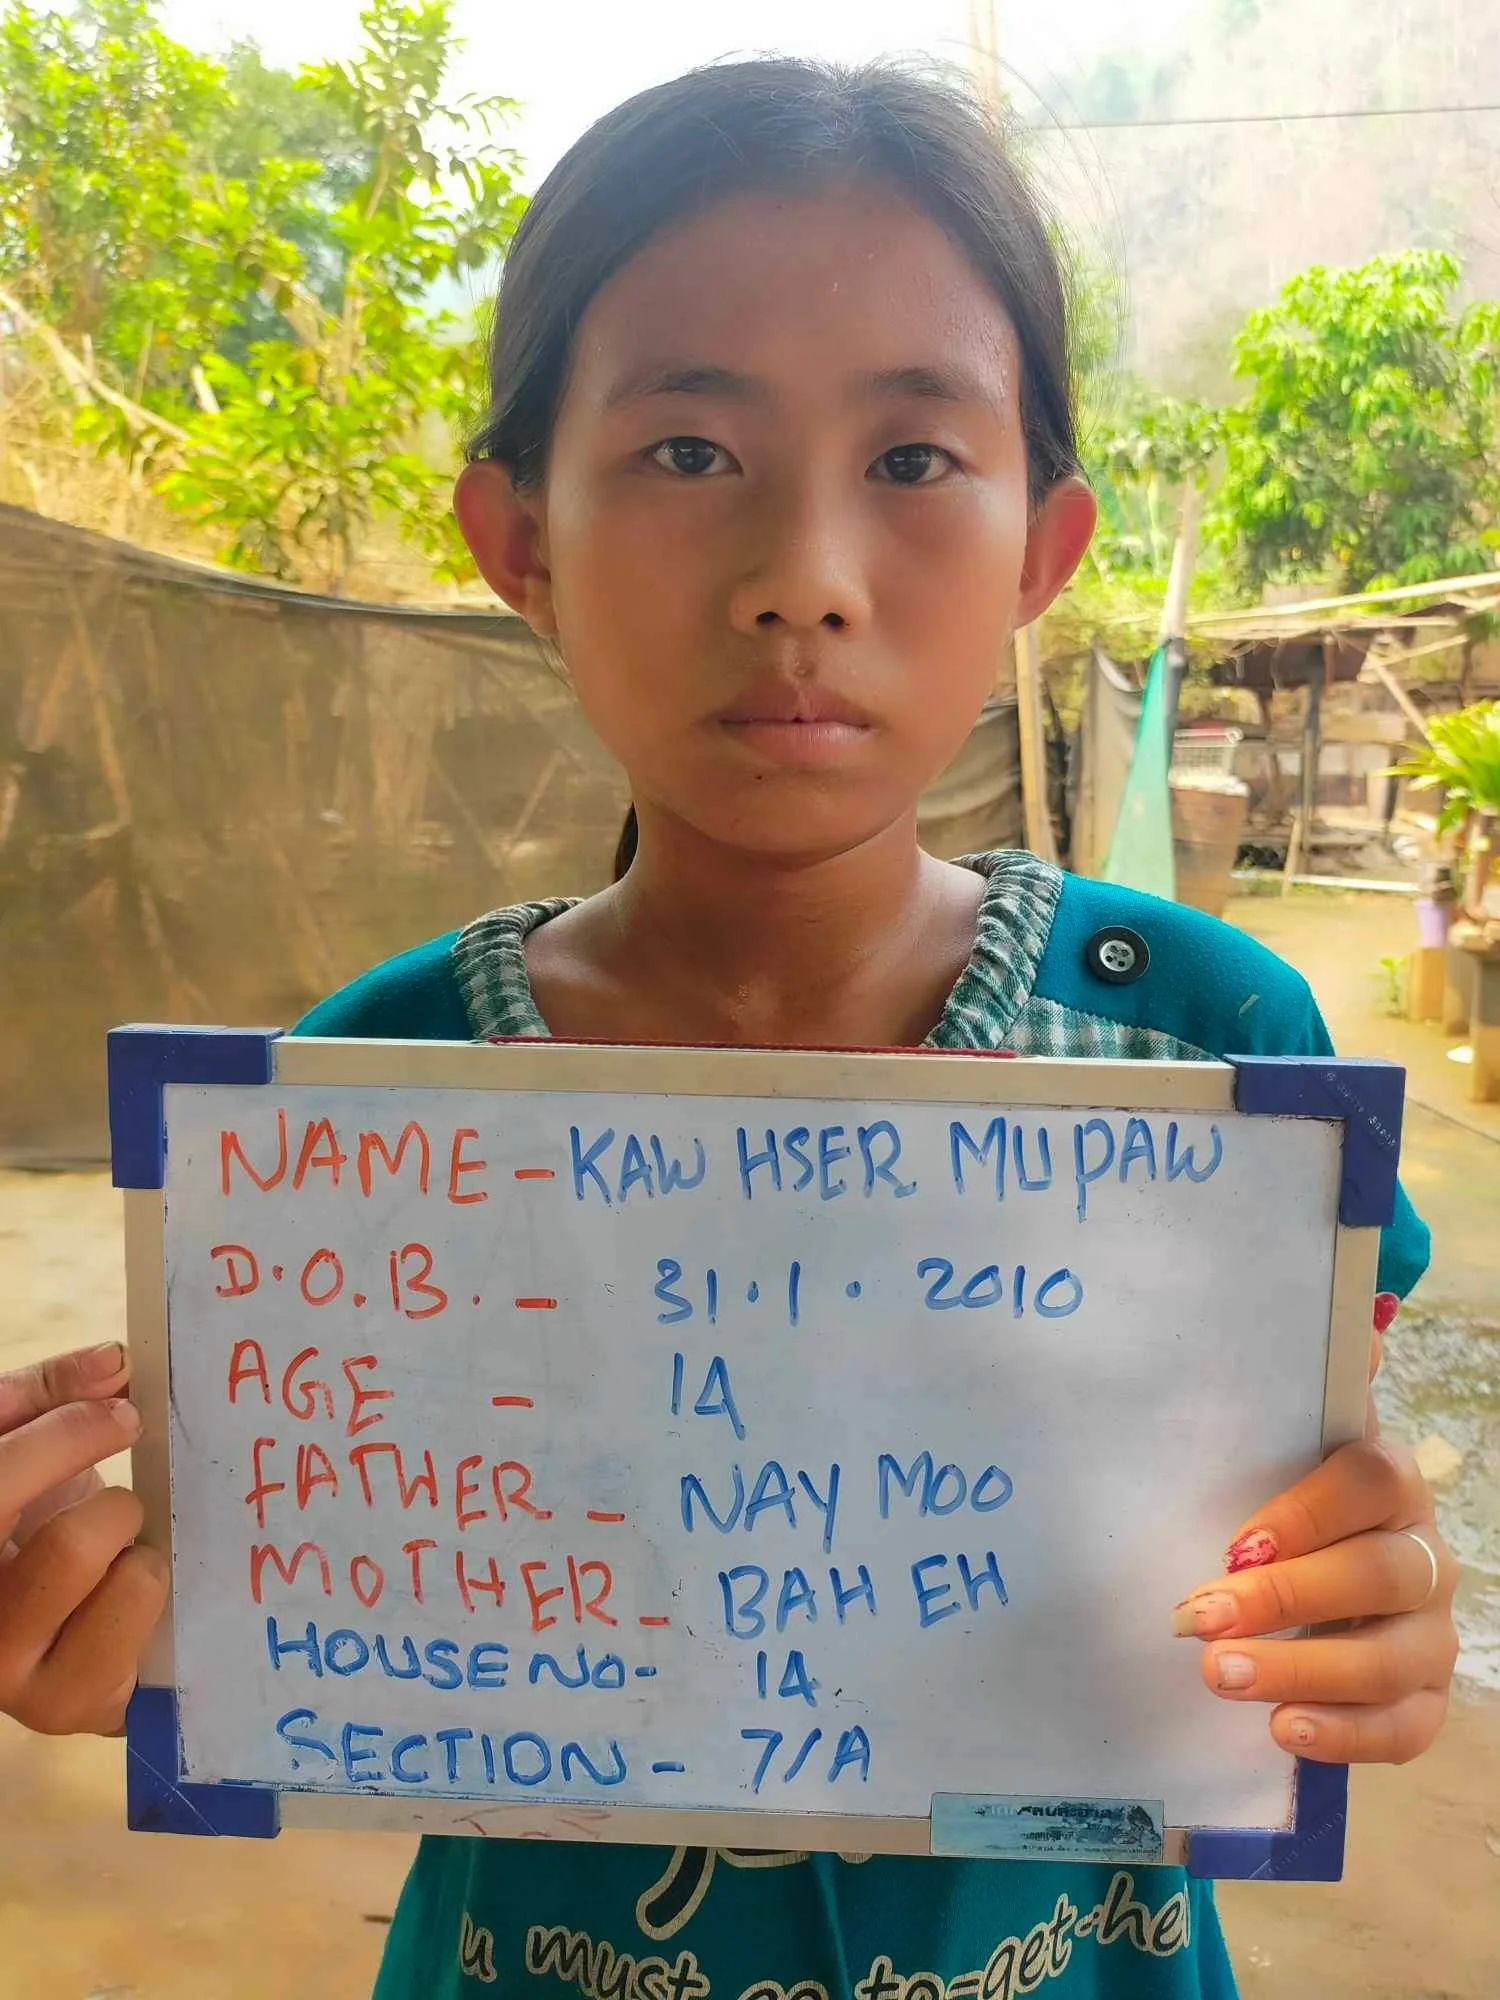 NAME - KAW HSER MU PAW
D.O.B. - 31.1.2010
AGE - 14
FATHER - NAY MOO
MOTHER - BAH EH
HOUSE NO- 14
SECTION - 7/A
u must go to-get-he